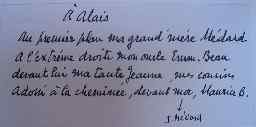 à Alais
Au premier plan ma grand'mère Médard
à l'extrême droite mon oncle Beau
devant lui ma tante Jeanne, mes cousins
Adossé à la cheminée, devant moi, Maurice B.
↓
J. Médard